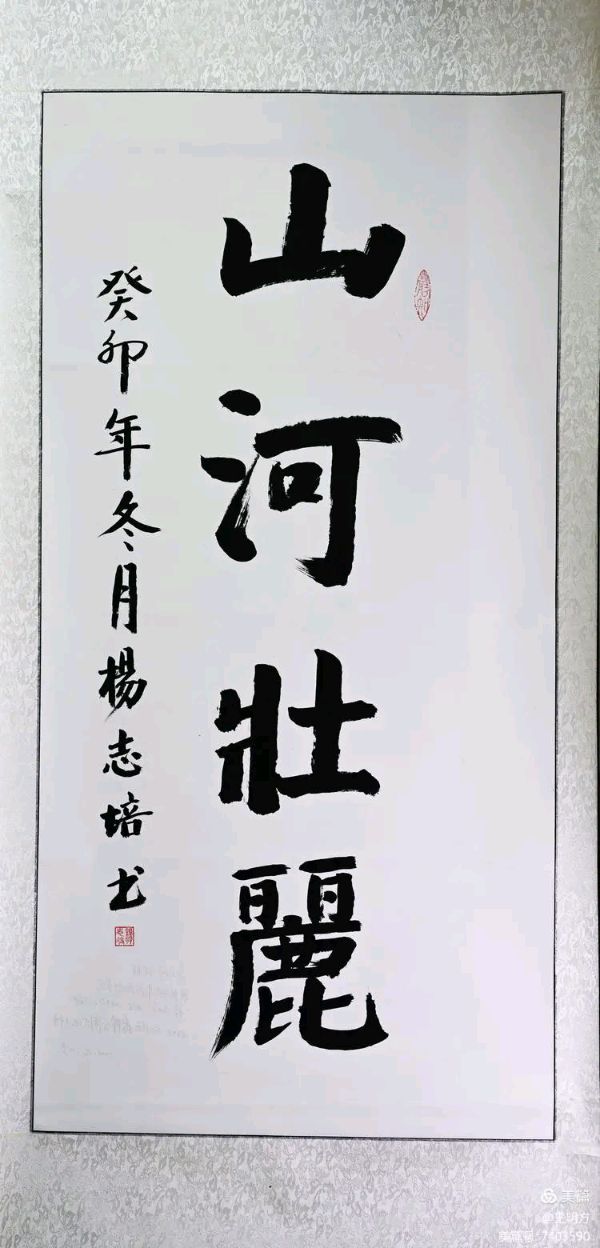 山河壯麗
癸卯年冬月楊志培书
美篇
美篇号:7403590